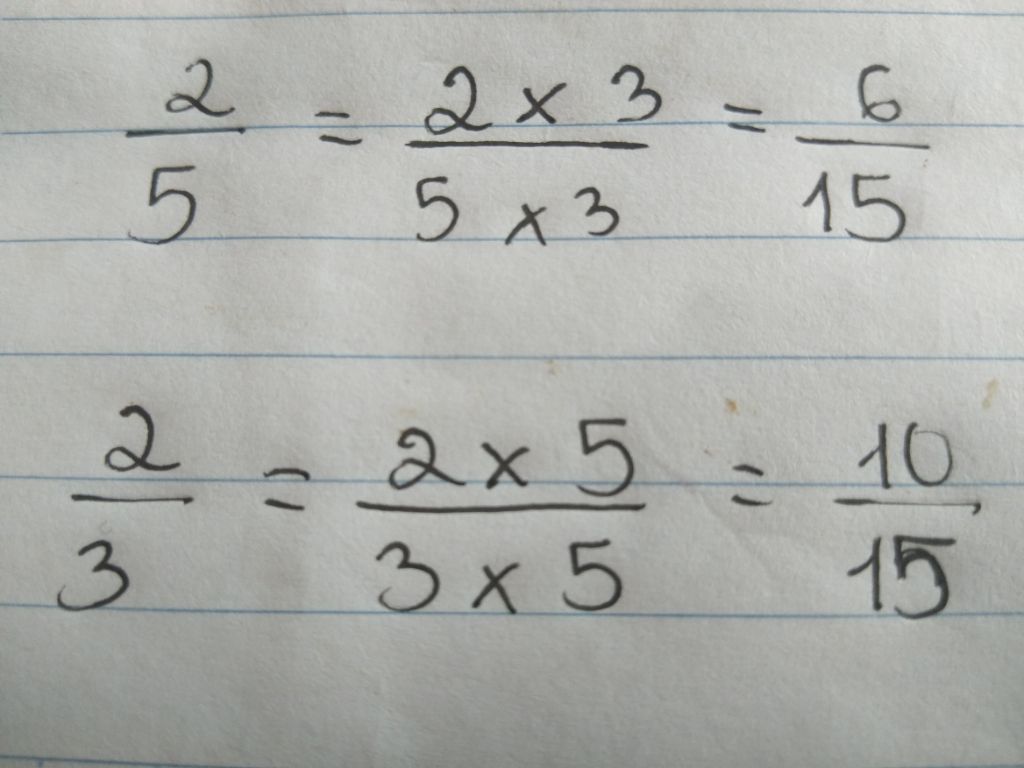 2/5 = 2 x 3/5 x 3 = 6/15
2/3 = 2 x 5/3 x 5 = 10/15